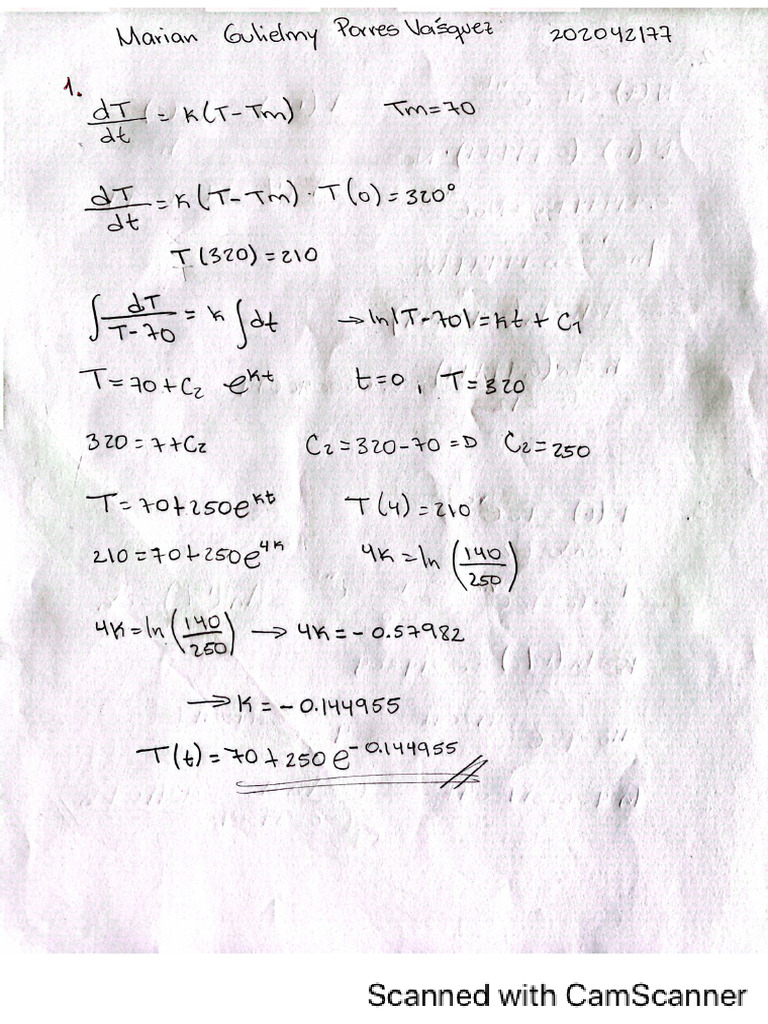 Marian Gulielmy Porres Vásquez 202042177
1.
dT/dt = K(T-Tm) Tm=70
dT/dt = K(T-Tm) · T(0)=320°
T(320)=210
∫ dT/(T-70) = K ∫dt → ln|T-70|=Kt + C₁
T=70+C₂ e^(Kt) t=0, T=320
320=7+C₂ C₂=320-70 =D C₂=250
T=70+250e^(Kt) T(4)=210
210=70+250e^(4K) 4K=ln(140/250)
4K=ln(140/250) → 4K=-0.57982
→ K=-0.144955
T(t)=70+250e^(-0.144955)
Scanned with CamScanner